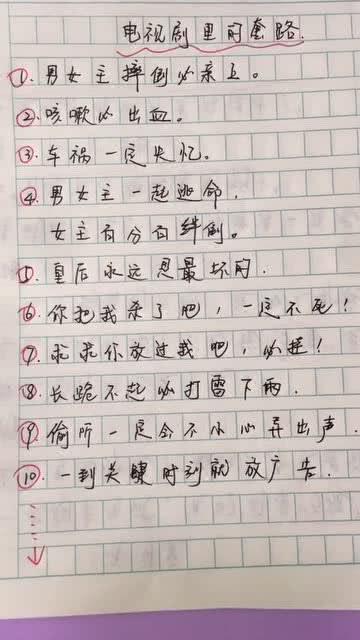 电视剧里的套路.
①.男女主摔倒必亲上。
②.咳嗽必出血。
③.车祸一定失忆。
④.男女主一起逃命,
女主百分百绊倒。
⑤.皇后永远是最坏的.
⑥.你把我杀了吧,一定不死!
⑦.求求你放过我吧,必挂!
⑧.长跪不起必打雷下雨.
⑨.偷听一定会不小心弄出声.
⑩.一到关键时刻就放广告.